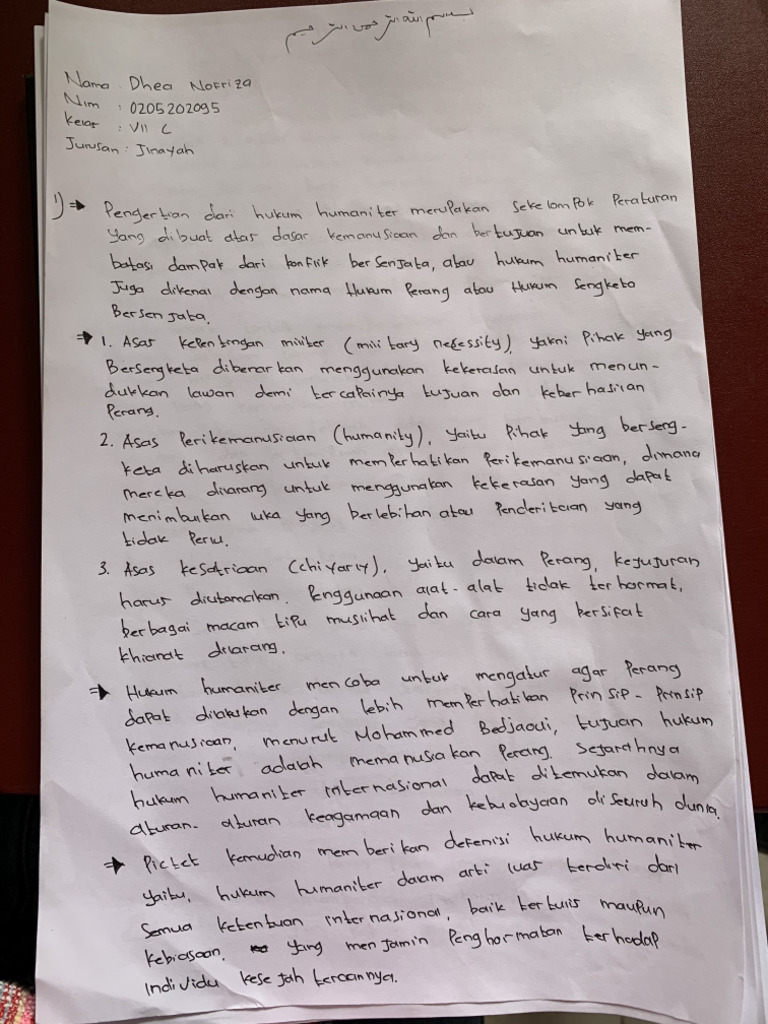 بسم الله الرحمن الرحيم
Nama : Dhea Nofriza
Nim : 0205202095
Kelas : VII C
Jurusan : Jinayah
1) → Pengertian dari hukum humaniter merupakan sekelompok Peraturan
yang dibuat atas dasar kemanusiaan dan bertujuan untuk mem-
batasi dampak dari konflik bersenjata, atau hukum humaniter
Juga dikenal dengan nama Hukum Perang atau Hukum Sengketa
Bersenjata.
→ 1. Asas kepentingan militer (military necessity), yakni Pihak yang
Bersengketa dibenarkan menggunakan kekerasan untuk menun-
dukkan lawan demi tercapainya tujuan dan keberhasilan
Perang.
2. Asas Perikemanusiaan (humanity), yaitu Pihak yang berseng-
keta diharuskan untuk memperhatikan Perikemanusiaan, dimana
mereka dilarang untuk menggunakan kekerasan yang dapat
menimbulkan luka yang berlebihan atau Penderitaan yang
tidak Perlu.
3. Asas kesatriaan (chivarly), yaitu dalam Perang, kejujuran
harus diutamakan. Penggunaan alat-alat tidak terhormat,
berbagai macam tipu muslihat dan cara yang bersifat
khianat dilarang.
→ Hukum humaniter mencoba untuk mengatur agar Perang
dapat dilakukan dengan lebih memperhatikan Prinsip-Prinsip
kemanusiaan, menurut Mohammed Bedjaoui, tujuan hukum
humaniter adalah memanusiakan Perang. Sejarahnya
hukum humaniter internasional dapat ditemukan dalam
aturan-aturan keagamaan dan kebudayaan diseluruh dunia.
→ Pictet kemudian memberikan defenisi hukum humaniter
yaitu, hukum humaniter dalam arti luas terdiri dari
Semua ketentuan internasional, baik tertulis maupun
kebiasaan, yang menjamin Penghormatan terhadap
individu kesejahteraannya.